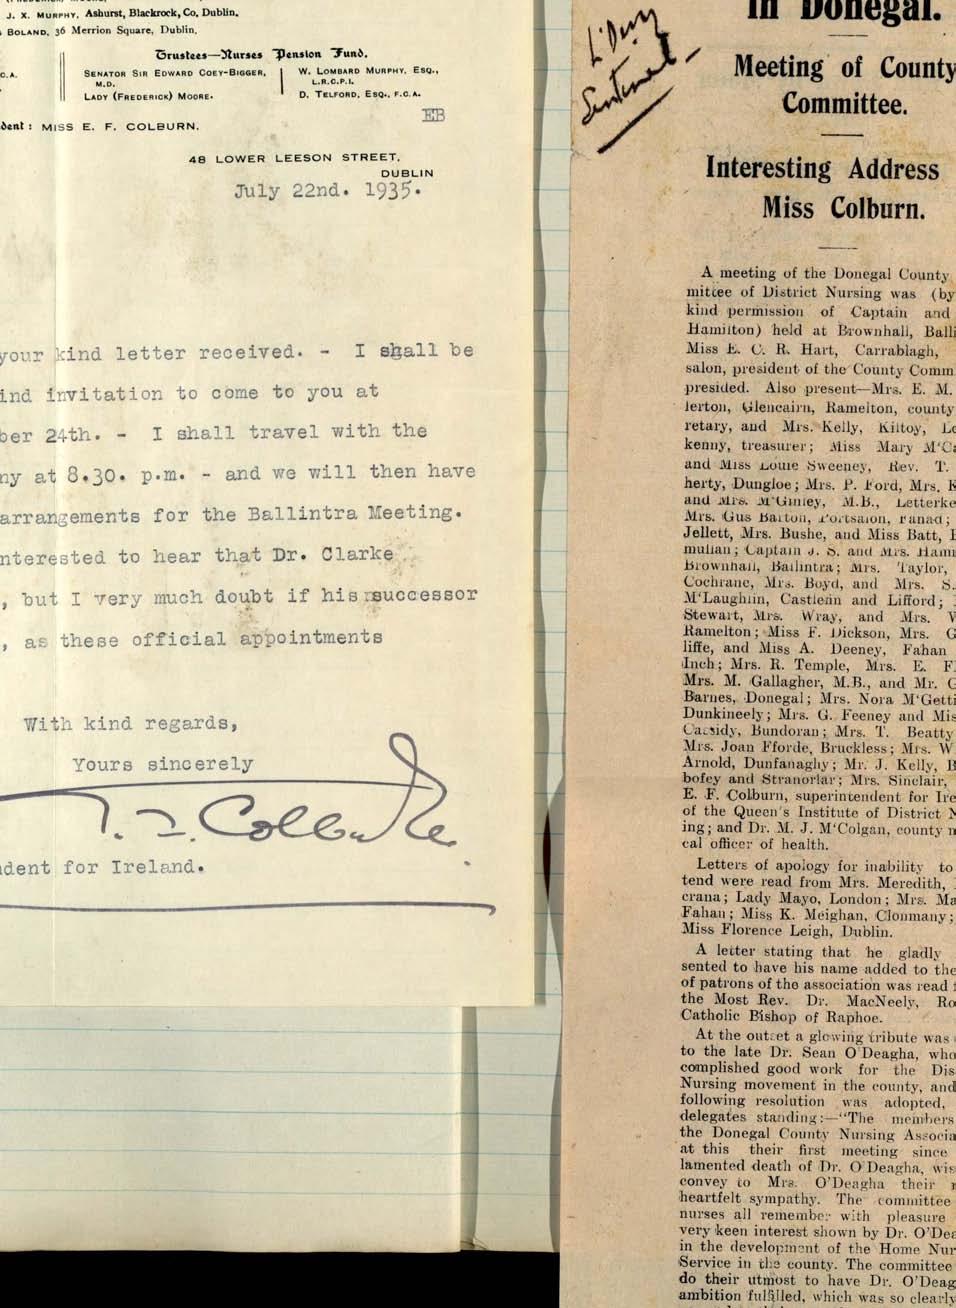 J. X. MURPHY, Ashurst, Blackrock, Co, Dublin.
BOLAND, 36 Merrion Square, Dublin.
Trustees—Nurses Pension Fund.
C.A.
SENATOR SIR EDWARD COEY-BIGGER,
M.D.
LADY (FREDERICK) MOORE.
W. LOMBARD MURPHY, ESQ.,
L.R.C.P.I.
D. TELFORD, ESQ., F.C.A.
EB
dent: MISS E. F. COLBURN.
48 LOWER LEESON STREET,
DUBLIN
July 22nd. 1935.
your kind letter received. - I shall be
ind invitation to come to you at
ber 24th. - I shall travel with the
ny at 8.30. p.m. - and we will then have
arrangements for the Ballintra Meeting.
nterested to hear that Dr. Clarke
, but I very much doubt if his successor
, as these official appointments
With kind regards,
Yours sincerely
dent for Ireland.
L'Derry
Sentinel
in Donegal.
Meeting of County
Committee.
Interesting Address
Miss Colburn.
A meeting of the Donegal County
mittee of District Nursing was (by
kind permission of Captain and
Hamilton) held at Brownhall, Balli
Miss E. C. R. Hart, Carrablagh,
salon, president of the County Comm
presided. Also present—Mrs. E. M.
lerton, Glencairn, Ramelton, county
retary, and Mrs. Kelly, Kiltoy, Le
kenny, treasurer; Miss Mary M'Ca
and Miss Louie Sweeney, Rev. T.
herty, Dungloe; Mrs. P. Ford, Mrs. K
and Mrs. M'Ginley, M.B., Letterke
Mrs. Gus Barton, Portsalon, Fanad;
Jellett, Mrs. Bushe, and Miss Batt, 
mullan; Captain J. S. and Mrs. Hami
Brownhall, Ballintra; Mrs. Taylor,
Cochrane, Mrs. Boyd, and Mrs. S.
M'Laughlin, Castlefin and Lifford;
Stewart, Mrs. Wray, and Mrs.
Ramelton; Miss F. Dickson, Mrs. G
liffe, and Miss A. Deeney, Fahan
Inch; Mrs. R. Temple, Mrs. E. F
Mrs. M. Gallagher, M.B., and Mr. G
Barnes, Donegal; Mrs. Nora M'Getti
Dunkineely; Mrs. G. Feeney and Mis
Cassidy, Bundoran; Mrs. T. Beatty
Mrs. Joan Fforde, Bruckless; Mrs. W
Arnold, Dunfanaghy; Mr. J. Kelly, B
bofey and Stranorlar; Mrs. Sinclair,
E. F. Colburn, superintendent for Ire
of the Queen's Institute of District N
ing; and Dr. M. J. M'Colgan, county m
cal officer of health.
Letters of apology for inability to
tend were read from Mrs. Meredith,
crana; Lady Mayo, London; Mrs. Ma
Fahan; Miss K. Meighan, Clonmany;
Miss Florence Leigh, Dublin.
A letter stating that he gladly
sented to have his name added to the
of patrons of the association was read
the Most Rev. Dr. MacNeely, Ro
Catholic Bishop of Raphoe.
At the outset a glowing tribute was
to the late Dr. Sean O'Deagha, who
complished good work for the Dis
Nursing movement in the county, and
following resolution was adopted,
delegates standing:—"The members
the Donegal County Nursing Associa
at this their first meeting since
lamented death of Dr. O'Deagha, wis
convey to Mrs. O'Deagha their
heartfelt sympathy. The committee
nurses all remember with pleasure
very keen interest shown by Dr. O'Dea
in the development of the Home Nur
Service in the county. The committee
do their utmost to have Dr. O'Deag
ambition fulfilled, which was so clearly